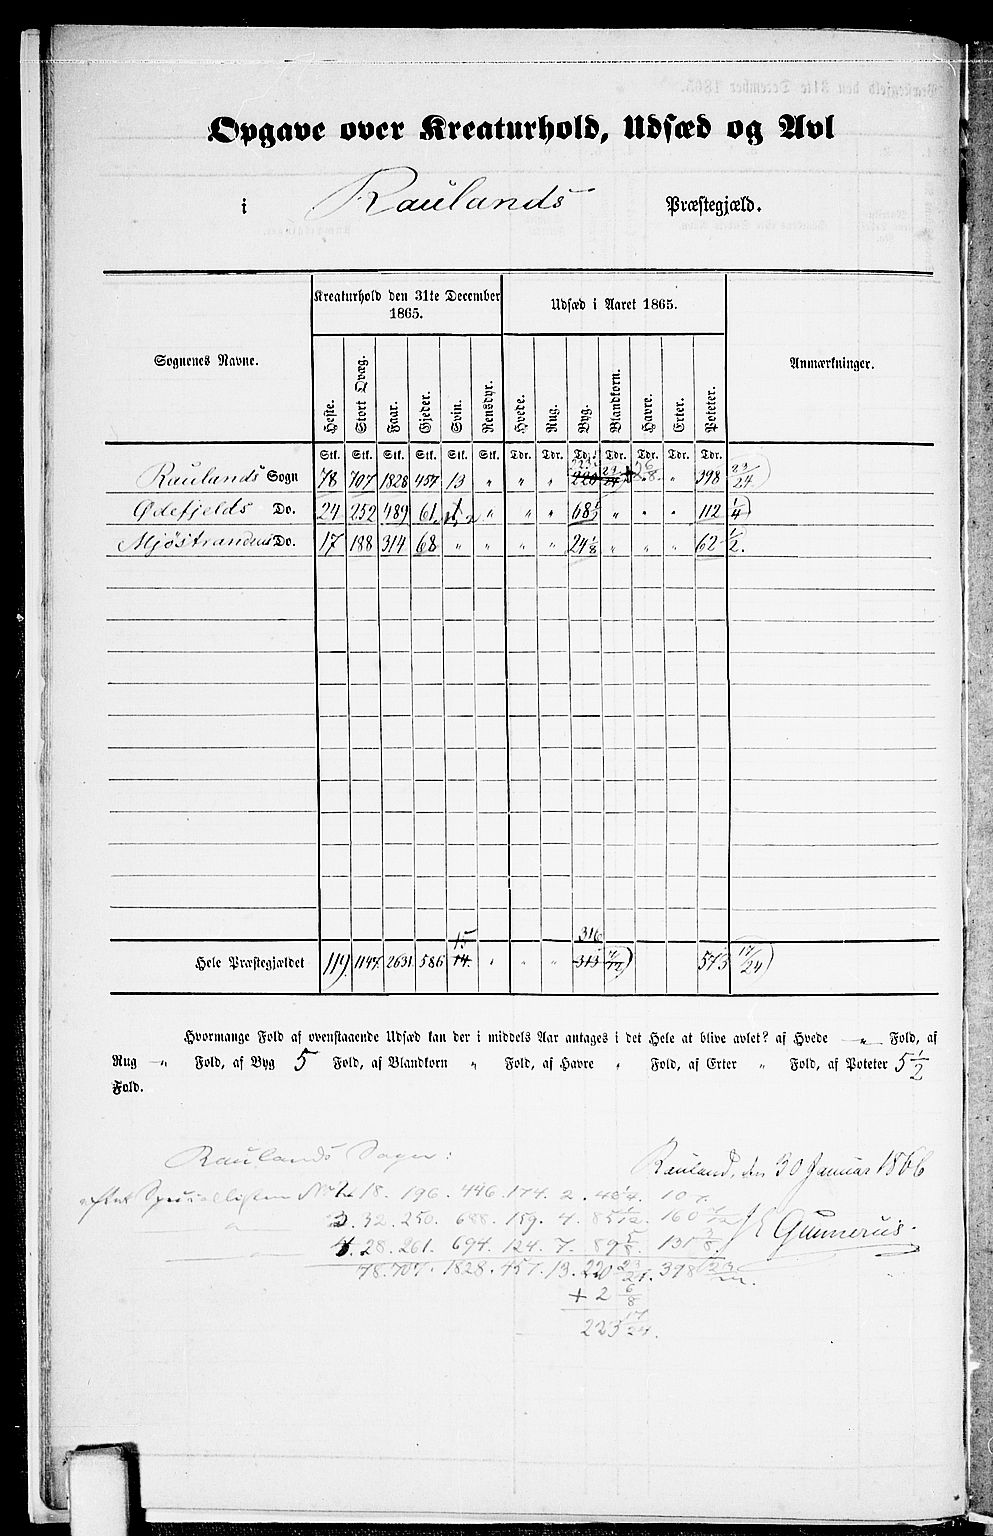 Opgave over Kreaturhold, Udsæd og Avl
i Raulands Præstegjæld.
Sognenes Navne. Kreaturhold den 31te December 1865. Udsæd i Aaret 1865. Anmærkninger.
Heste. Stort Qvæg. Faar. Gjeder. Svin. Rensdyr. Hvede. Rug. Byg. Blandkorn. Havre. Erter. Poteter.
Stk. Stk. Stk. Stk. Stk. Stk. Tdr. Tdr. Tdr. Tdr. Tdr. Tdr. Tdr.
Raulands Sogn 78 707 1828 457 13 „ „ „ 220 23/24 „ „ 398 23/24
Ødefjelds Do. 24 252 489 61 „ „ „ 68 „ „ „ 112 1/4
Mjøstrandens Do. 17 188 314 68 „ „ „ „ 24 1/8 „ „ „ 62 1/2.
15 316
Hele Præstegjældet 119. 1147. 2631 586 14. „ „ „ 313 573 17/24
Hvormange Fold af ovenstaaende Udsæd kan der i middels Aar antages i det Hele at blive avlet? af Hvede „ Fold, af
Rug „ Fold, af Byg 5 Fold, af Blandkorn „ Fold, af Havre „ Fold, af Erter „ Fold, af Poteter 5 1/2
Fold.
Raulands Sogn:
Rauland, den 30 Januar 1866
efter Speciallisten No 18. 196. 446. 174. 2. 107.
3. 32. 250. 688. 159. 4. 85 1/12. 160
Gunnerus.
4. 28. 261. 694. 124. 7. 89 5/8. 131 3/8
78. 707. 1828. 457. 13. 220 23/24. 398 23/24.
+ 2 6/8
223 17/24.